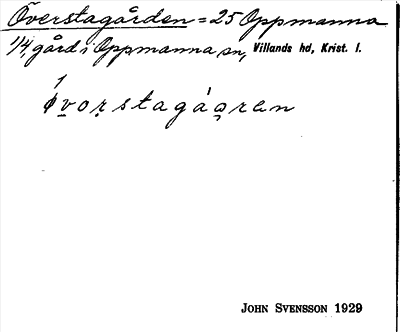 Överstagården = 25 Oppmanna
1/4, gård i Oppmanna sn, Villands hd, Krist. l.
John Svensson 1929